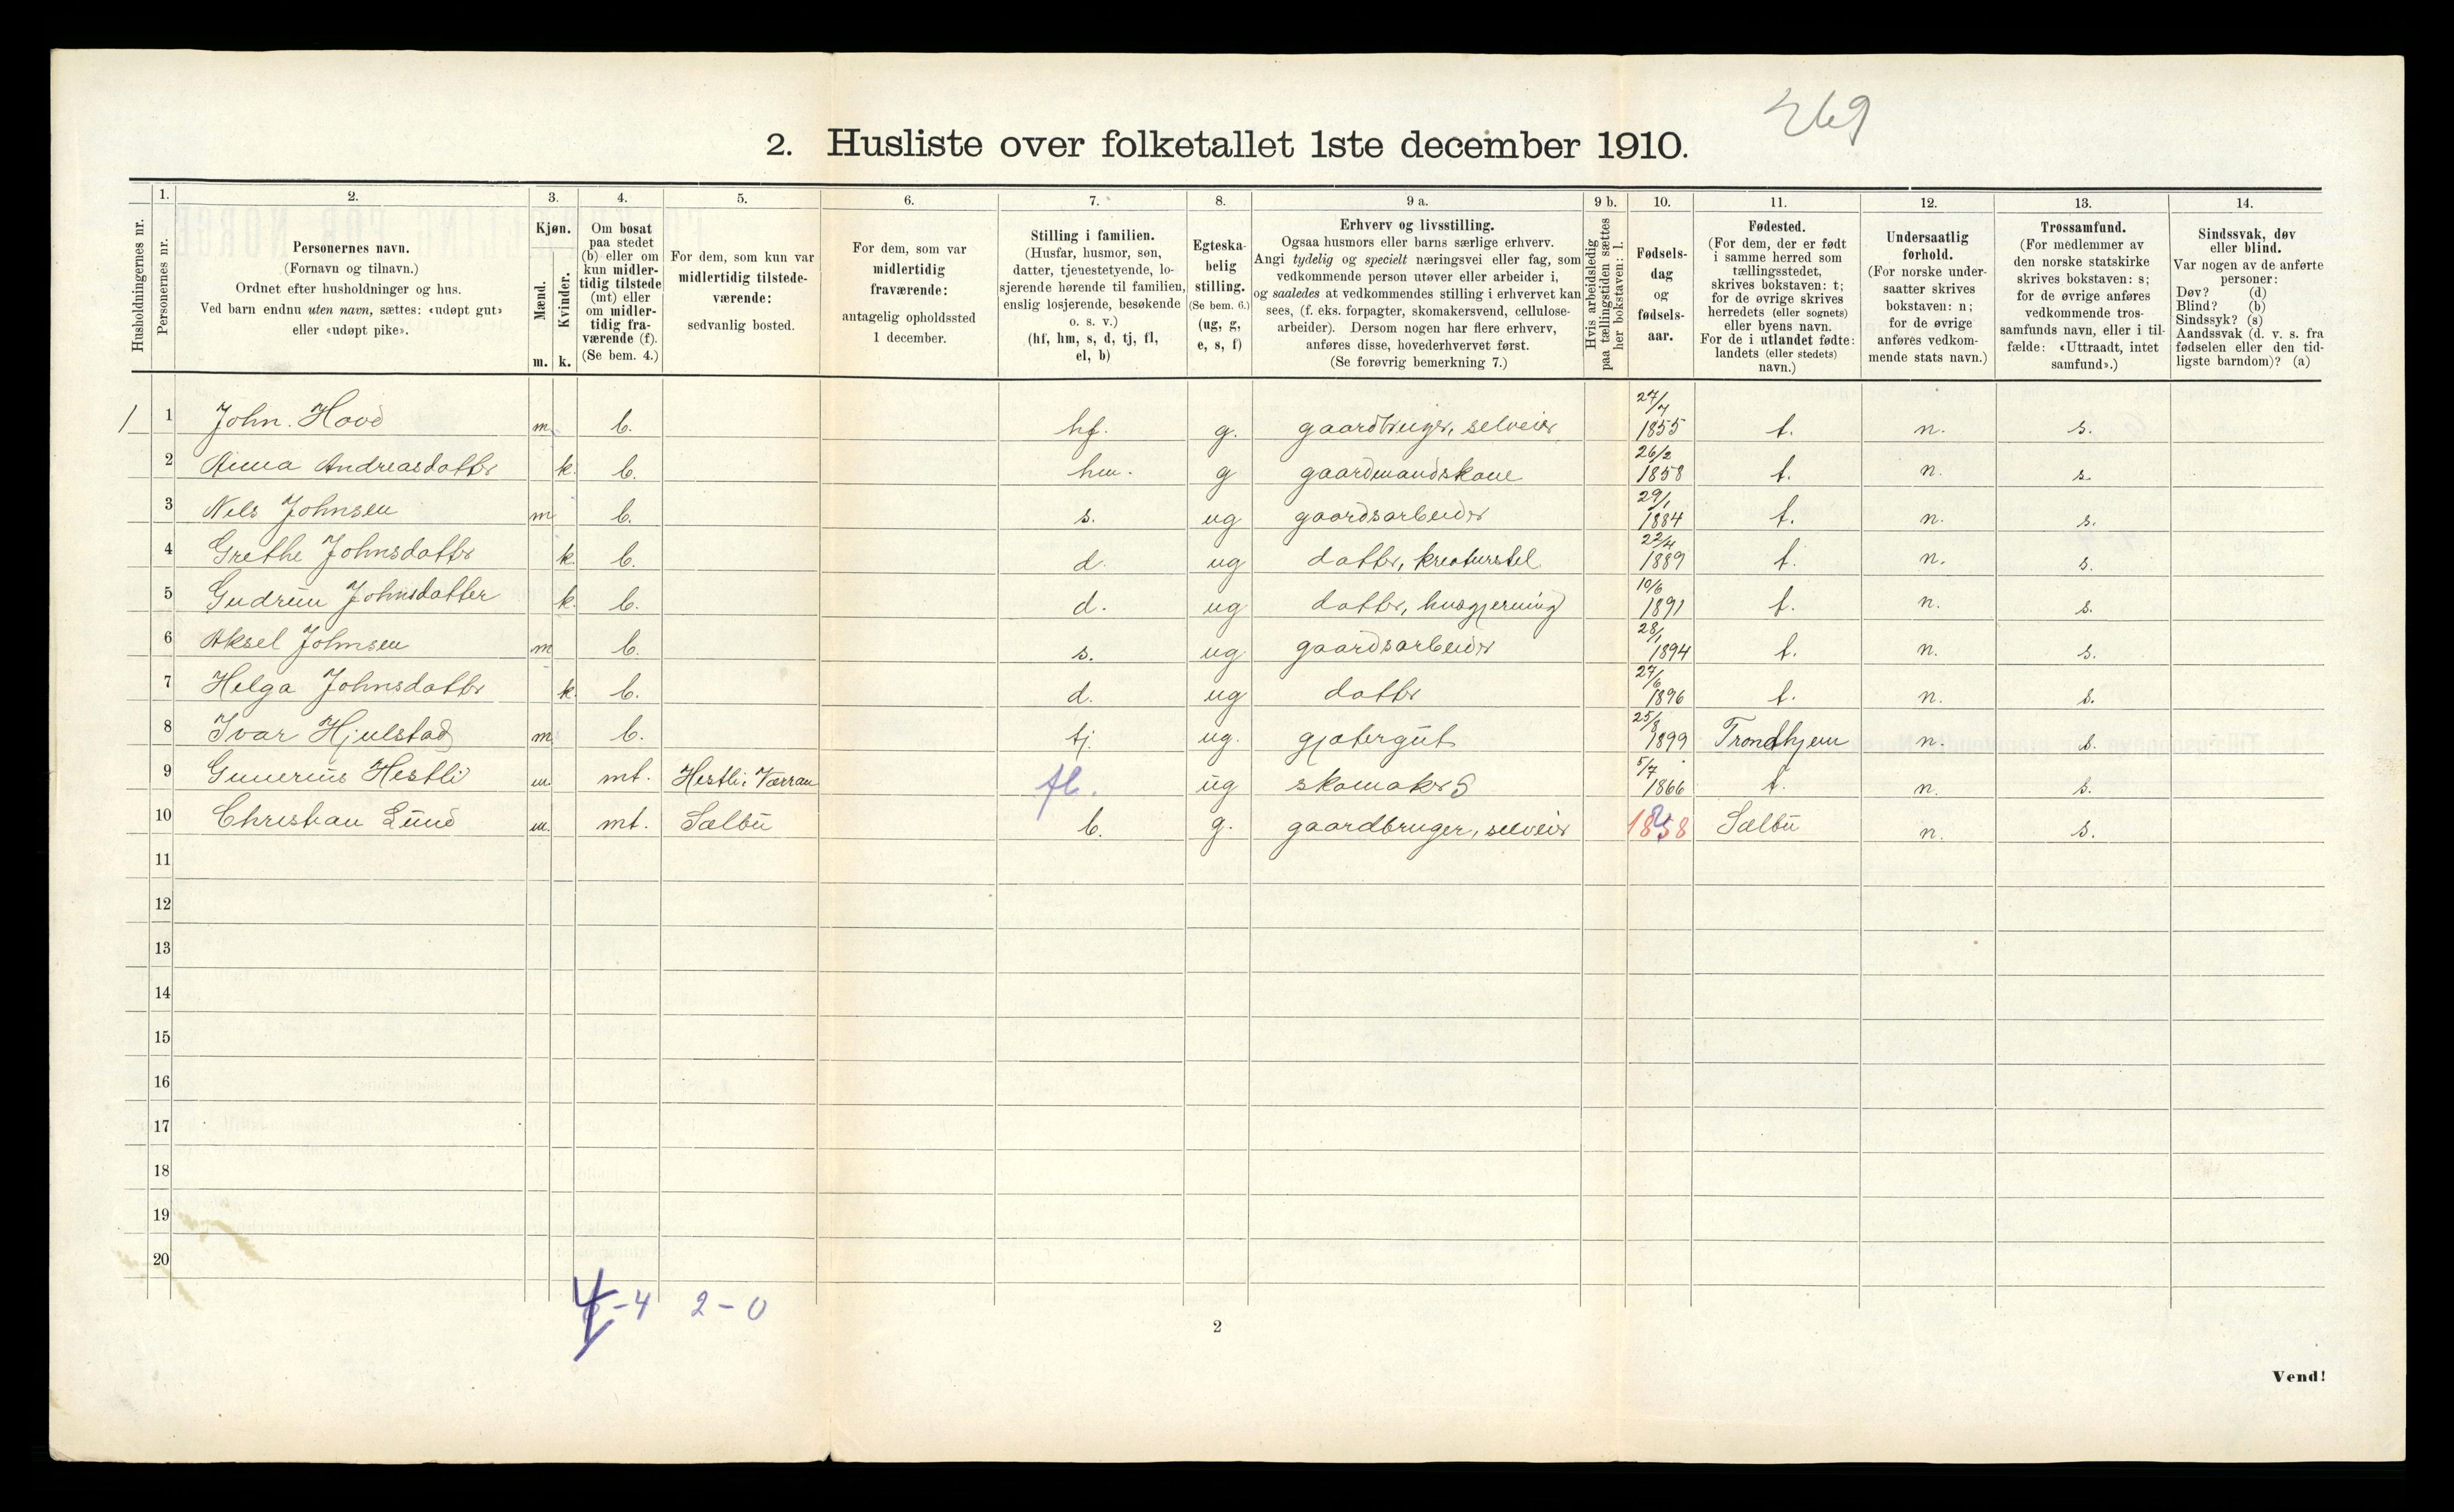 269
2. Husliste over folketallet 1ste december 1910.
Husholdningernes nr.
1.
Personernes nr.
2.
Personernes navn.
(Fornavn og tilnavn.)
Ordnet efter husholdninger og hus.
Ved barn endnu uten navn, sættes: «udøpt gut»
eller «udøpt pike».
3.
Kjøn.
Mænd.
Kvinder.
m. k.
4.
Om bosat
paa stedet
(b) eller om
kun midler-
tidig tilstede
(mt) eller
om midler-
tidig fra-
værende (f).
(Se bem. 4.)
5.
For dem, som kun var
midlertidig tilstede-
værende:
sedvanlig bosted.
6.
For dem, som var
midlertidig
fraværende:
antagelig opholdssted
1 december.
7.
Stilling i familien.
(Husfar, husmor, søn,
datter, tjenestetyende, lo-
sjerende hørende til familien,
enslig losjerende, besøkende
o. s. v.)
(hf, hm, s, d, tj, fl,
el, b)
8.
Egteska-
belig
stilling.
(Se bem. 6.)
(ug, g,
e, s, f)
9 a.
Erhverv og livsstilling.
Ogsaa husmors eller barns særlige erhverv.
Angi tydelig og specielt næringsvei eller fag, som
vedkommende person utøver eller arbeider i,
og saaledes at vedkommendes stilling i erhvervet kan
sees, (f. eks. forpagter, skomakersvend, cellulose-
arbeider). Dersom nogen har flere erhverv,
anføres disse, hovederhvervet først.
(Se forøvrig bemerkning 7.)
9 b.
Hvis arbeidsledig
paa tællingstiden sættes
her bokstaven: l.
10.
Fødsels-
dag
og
fødsels-
aar.
11.
Fødested.
(For dem, der er født
i samme herred som
tællingsstedet,
skrives bokstaven: t;
for de øvrige skrives
herredets (eller sognets)
eller byens navn.
For de i utlandet fødte:
landets (eller stedets)
navn.)
12.
Undersaatlig
forhold.
(For norske under-
saatter skrives
bokstaven: n;
for de øvrige
anføres vedkom-
mende stats navn.)
13.
Trossamfund.
(For medlemmer av
den norske statskirke
skrives bokstaven: s;
for de øvrige anføres
vedkommende tros-
samfunds navn, eller i til-
fælde: «Uttraadt, intet
samfund».)
14.
Sindssvak, døv
eller blind.
Var nogen av de anførte
personer:
Døv? (d)
Blind? (b)
Sindssyk? (s)
Aandssvak (d. v. s. fra
fødselen eller den tid-
ligste barndom)? (a)
1 1 John Hovd m b. hf. g. gaardbruger, selveier 27/7 1855 t. n. s.
2 Anna Andreasdatter k. b. hm. g gaardmandskone 26/2 1858 t. n. s.
3 Nels Johnsen m b. s. ug gaardsarbeider 29/1 1884 t. n. s.
4 Grethe Johnsdatter k. b. d. ug datter, kreaturstel 22/4 1889 t. n. s.
5 Gudrun Johnsdatter k. b. d. ug datter, husgjerning 10/6 1891 t. n. s.
6 Aksel Johnsen m b. s. ug gaardsarbeider 28/1 1894 t. n. s.
7 Helga Johnsdatter k. b. d. ug datter 27/6 1896 t. n. s.
8 Ivar Hjulstad m b. tj. ug. gjætergut 25/8 1899 Trondhjem n. s.
9 Gunerius Hestli m. mt. Hestli i Værran fl. ug skomaker S 5/7 1866 t. n. s.
10 Christian Lund m. mt. Sælbu b. g. gaardbruger, selveier 1858 Sælbu n. s.
11
12
13
14
15
16
17
18
19
20
4-4 2-0
2
Vend!